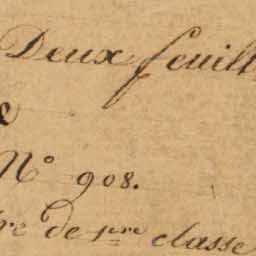 Deux feuill
N° 908.
re de 1ere classe